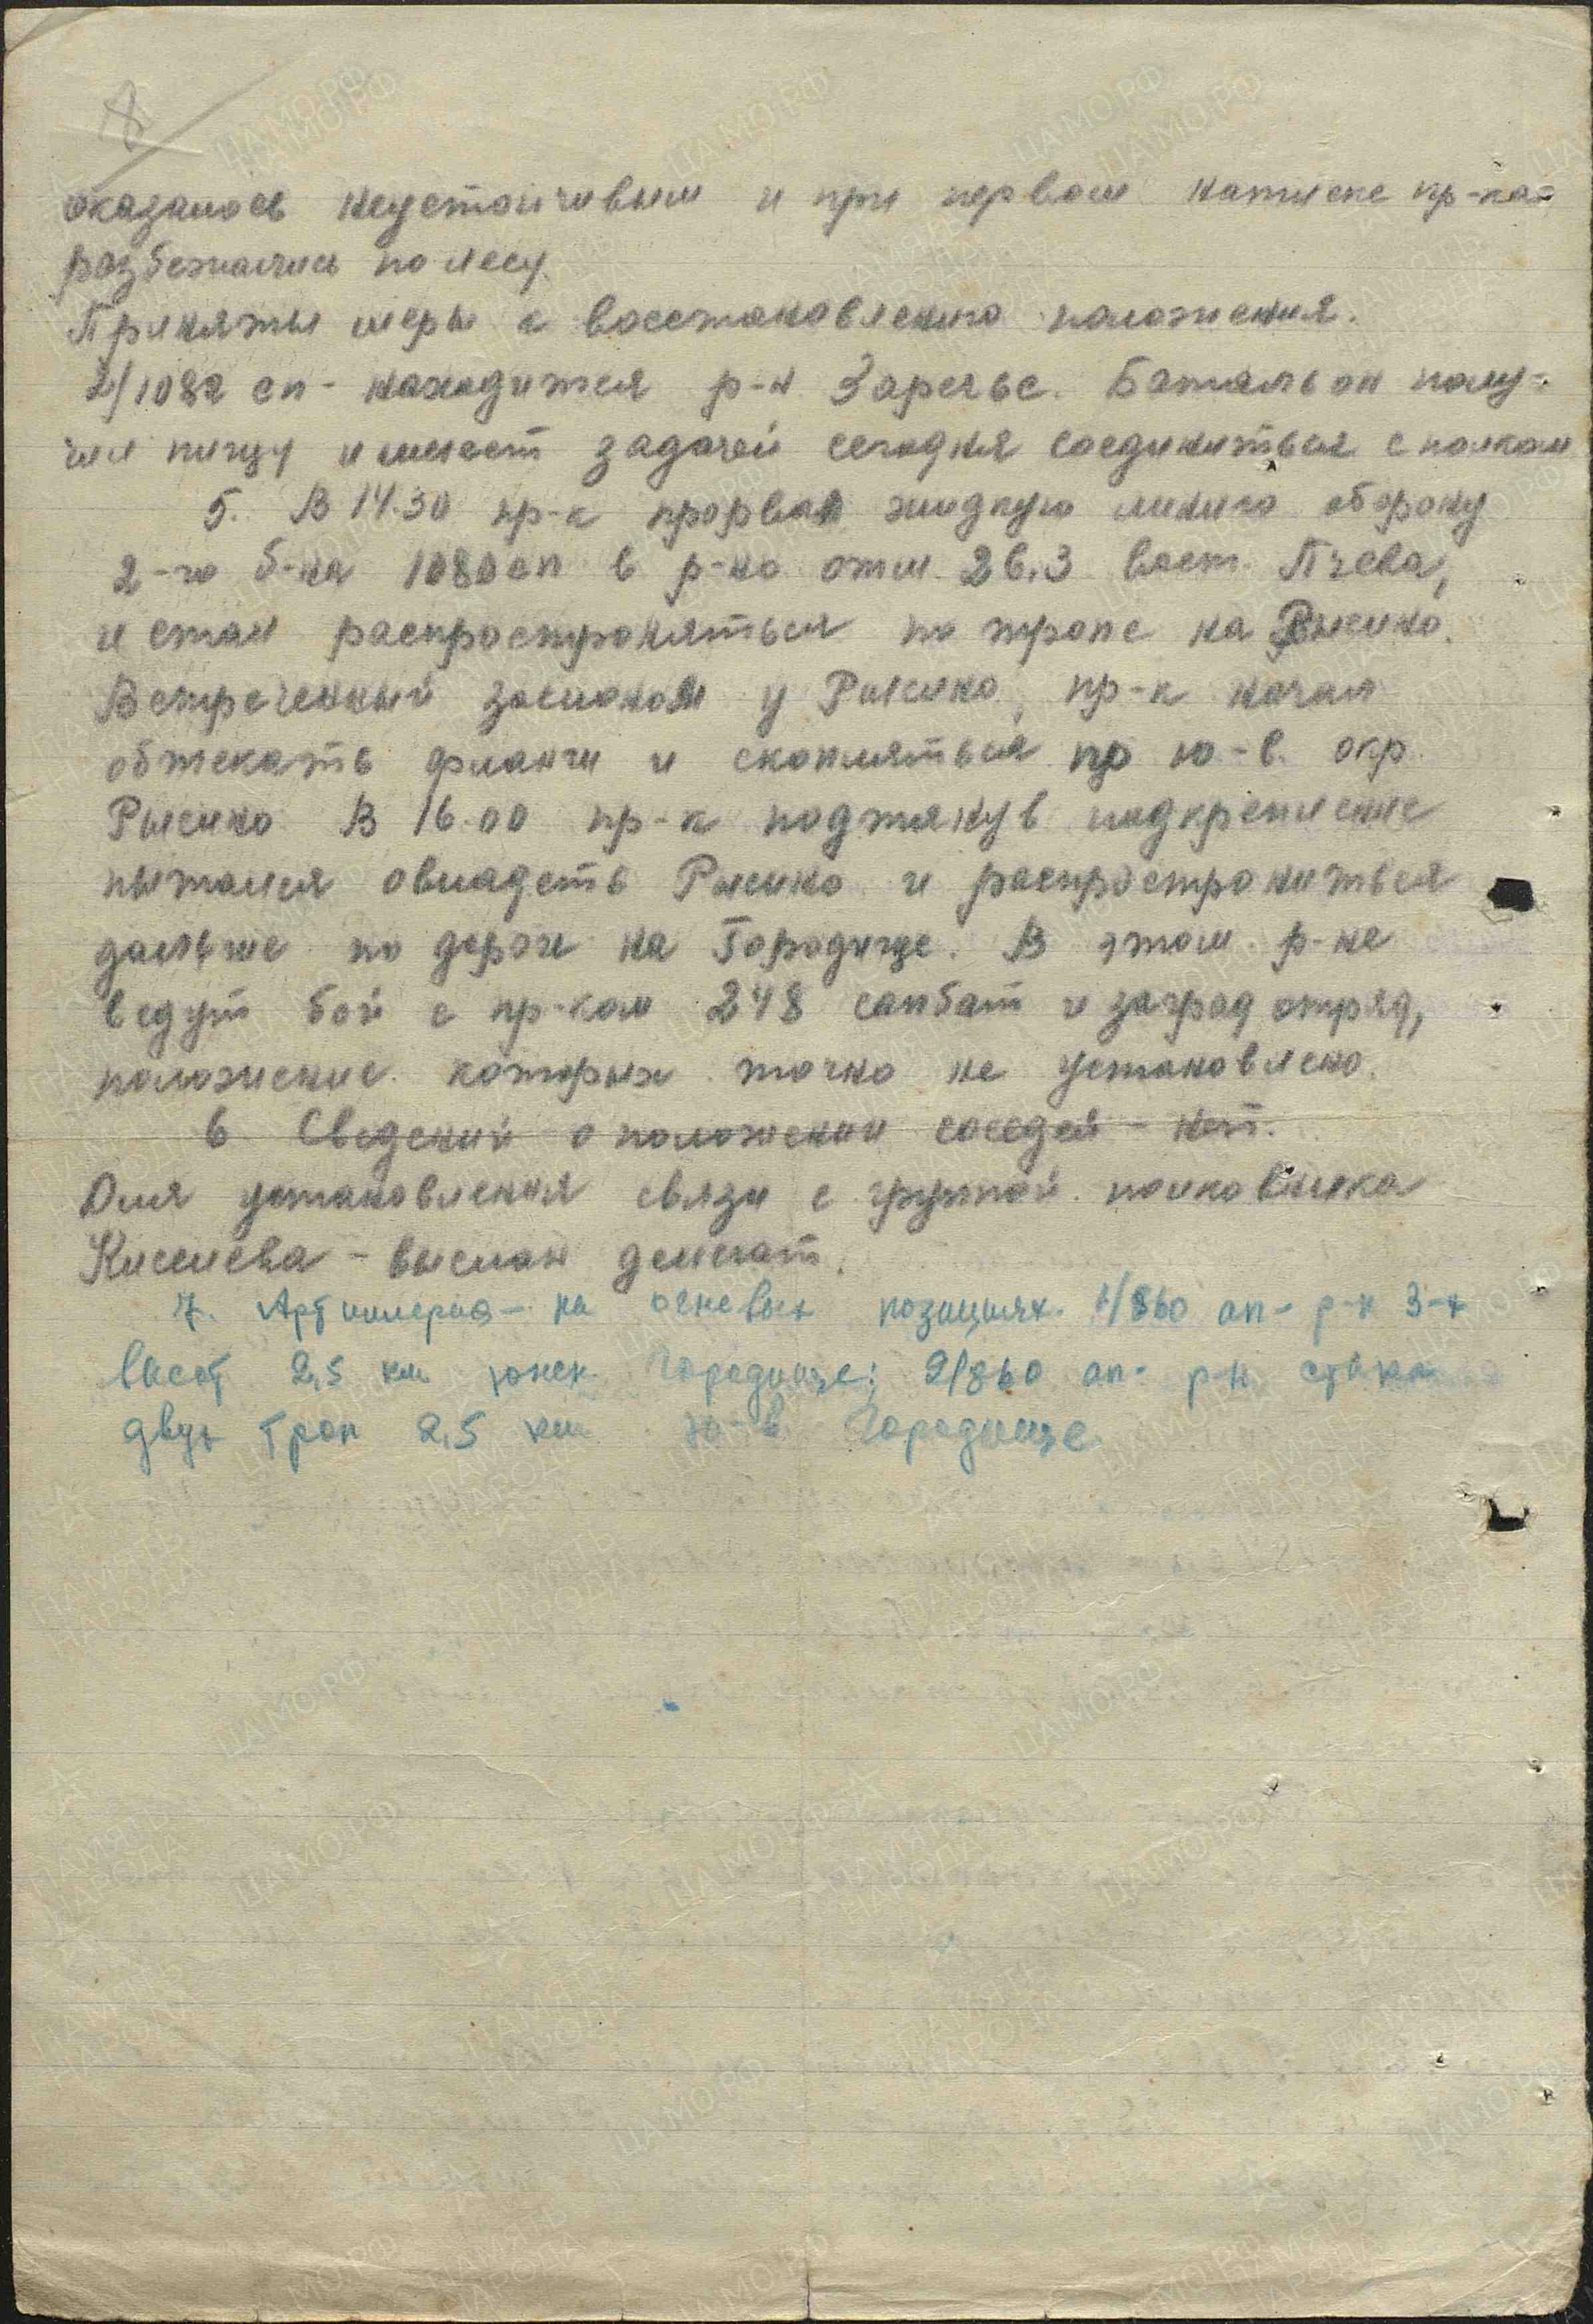 8
оказалось неустойчивым и при первом натиске пр-ка-
разбежались по лесу.
Приняты меры к восстановлению положения.
2/1082 сп - находится р-н Заречье. Батальон полу-
чил пищу и имеет задачей сегодня соединиться с полком
5. В 14.30 пр-к прорвал жидкую линию оборону
2-го б-на 1080 сп в р-не отм. 26.3 вост. Пчева,
и стал распространяться по тропе на Рысино.
Встреченный заслоном у Рысино, пр-к начал
обтекать фланги и скопляться по ю-в. окр.
Рысино В 16.00 пр-к подтянув подкрепление
пытался овладеть Рысино и распространиться
дальше по дороге на Городище. В этом р-не
ведут бой с пр-ком 248 сапбат и заград отряд,
положение которых точно не установлено.
6 Сведений о положении соседей - нет.
Для установления связи с группой полковника
Киселева - выслан делегат.
7. Артиллерия - на огневых позициях. 1/860 ап - р-н 3-х
высот 2,5 км южн. Городище; 2/860 ап - р-н стыка
двух троп 2,5 км ю-в Городище